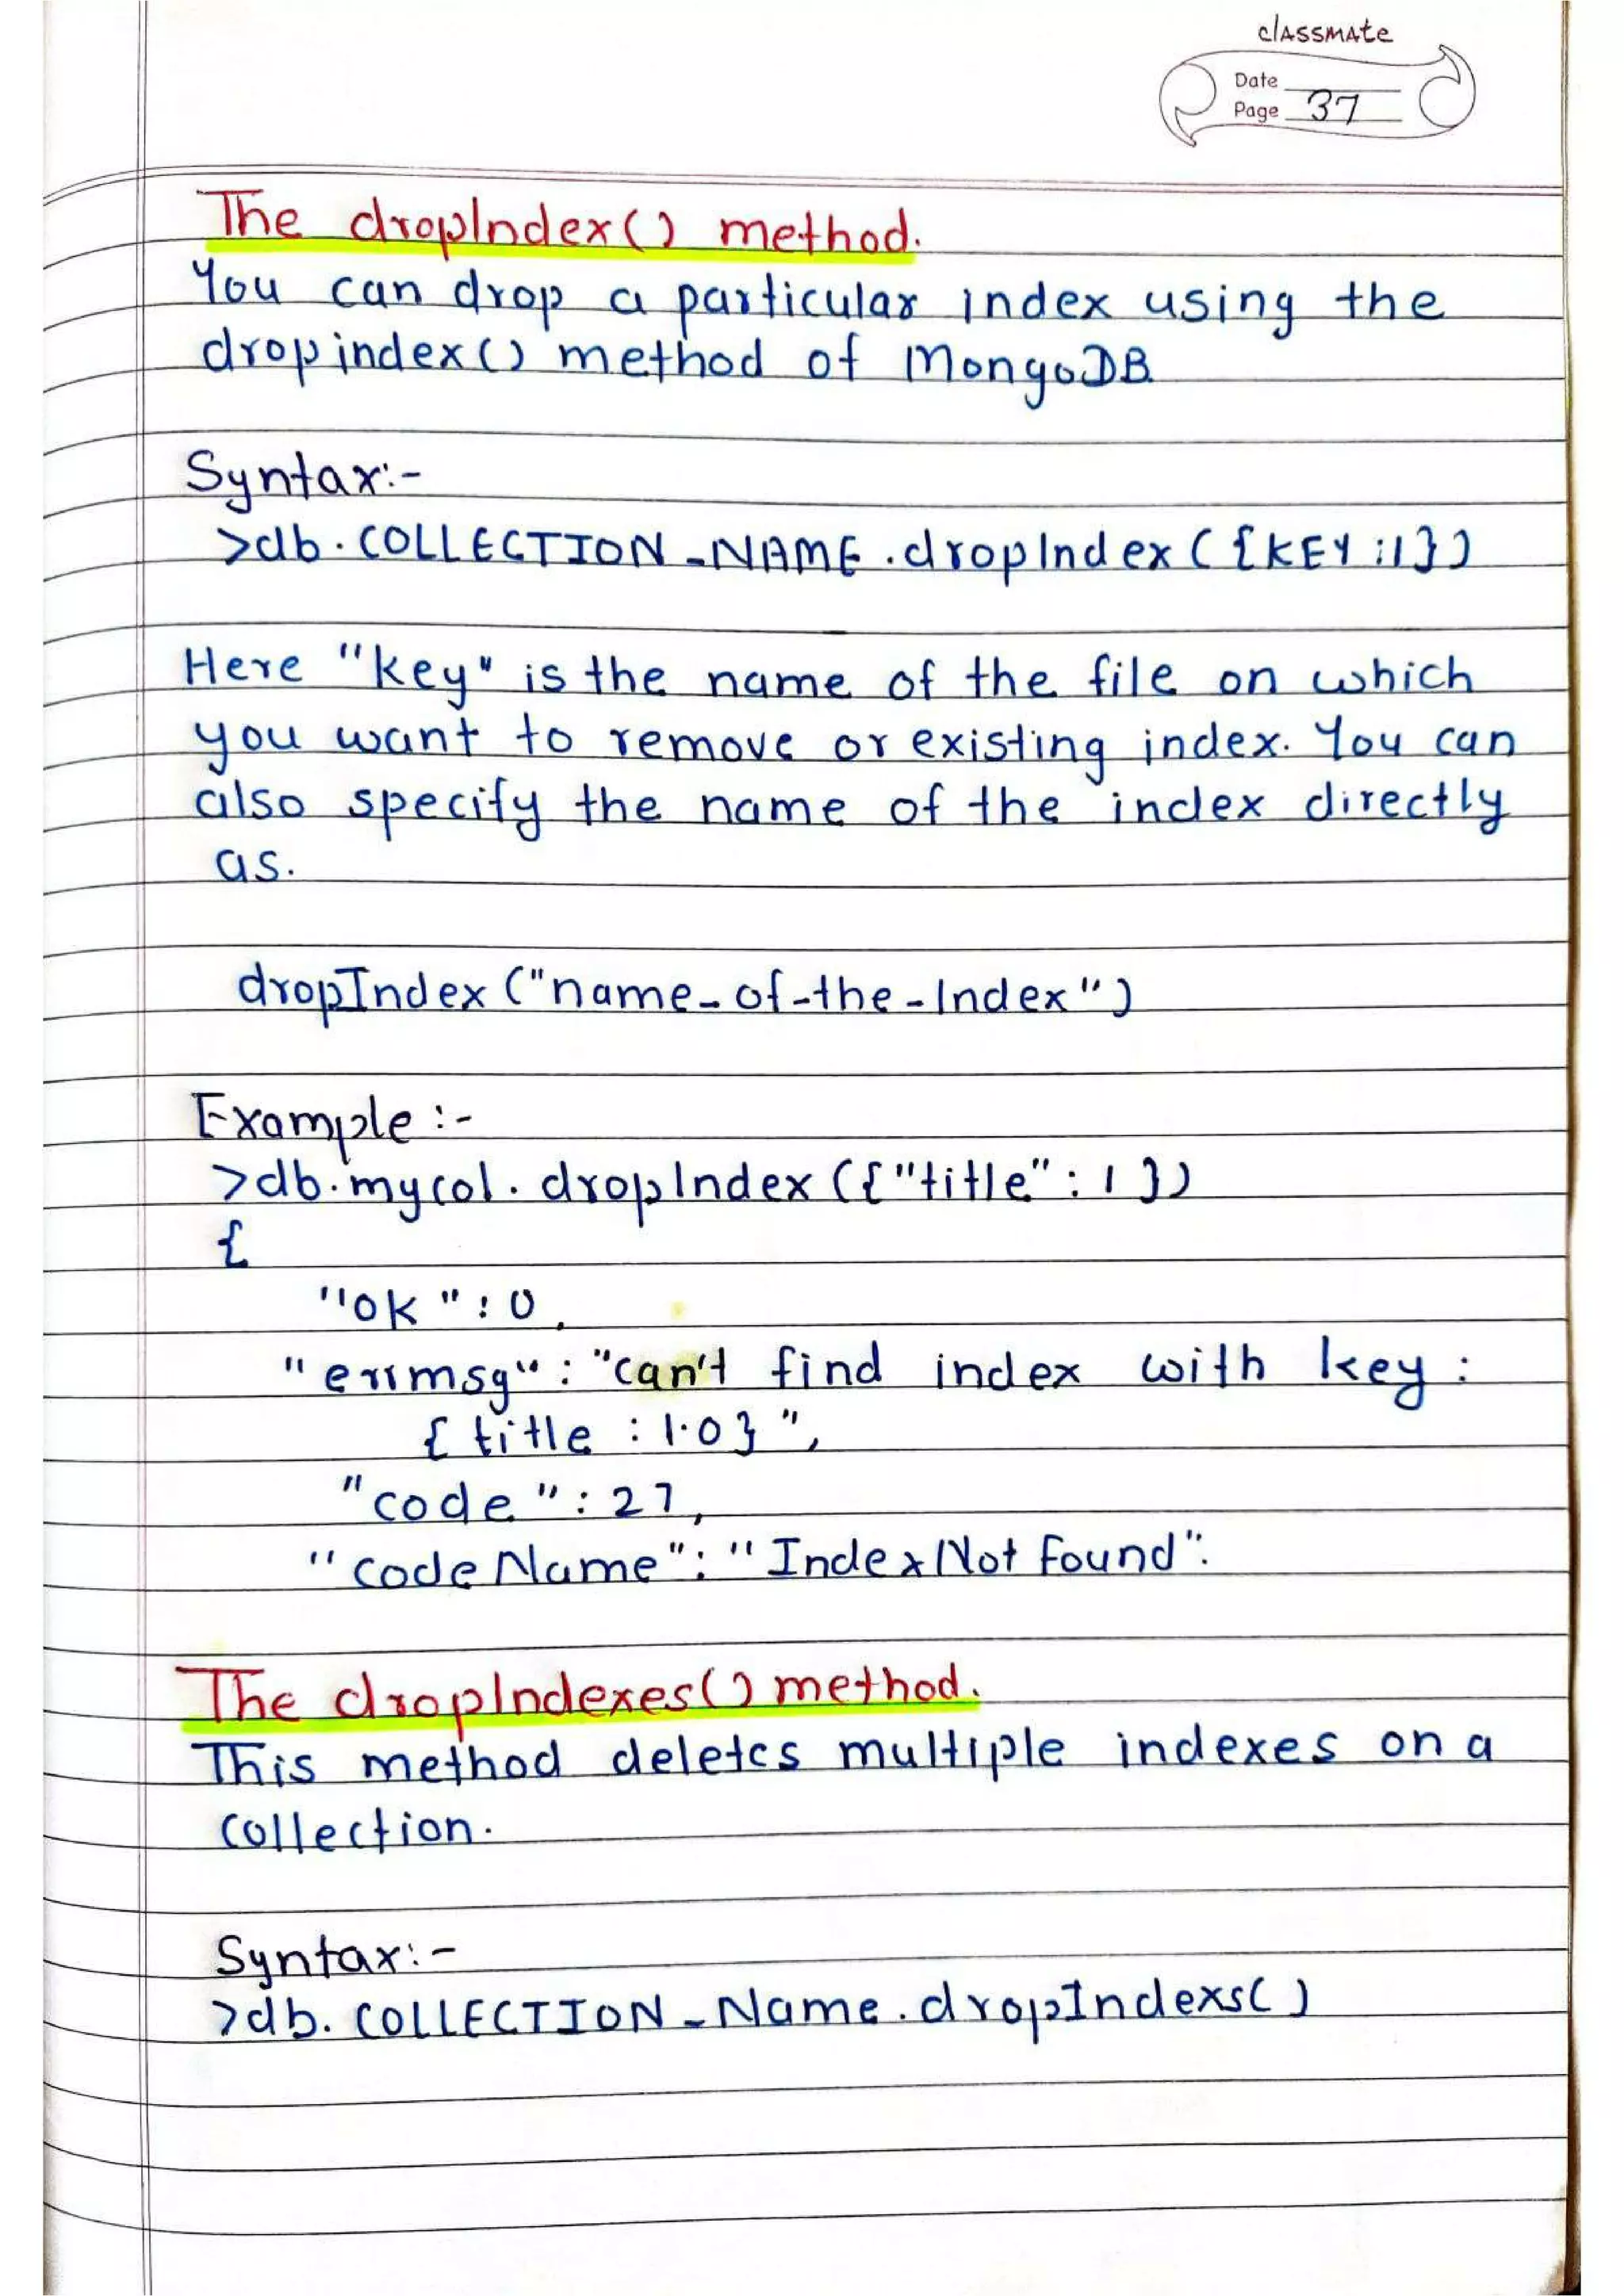 classmate
Date
Page 37
The dropIndex() method.
You can drop a particular index using the
dropindex() method of MongoDB
Syntax:-
>db.COLLECTION_NAME.dropIndex({KEY:1})
Here "key" is the name of the file on which
you want to remove or existing index. You can
also specify the name of the index directly
as.
dropIndex("name-of-the-Index")
Example:-
>db.mycol.dropIndex({"title": 1 })
{
"ok": 0,
"errmsg": "can't find index with key:
{ title : 1.0}",
"code": 27,
"codeName": "IndexNotFound".
The dropIndexes() method.
This method deletes multiple indexes on a
collection.
Syntax:-
>db.COLLECTION_Name.dropIndexs()